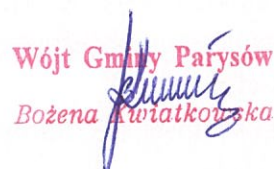 Wójt Gminy Parysów
Bożena Kwiatkowska